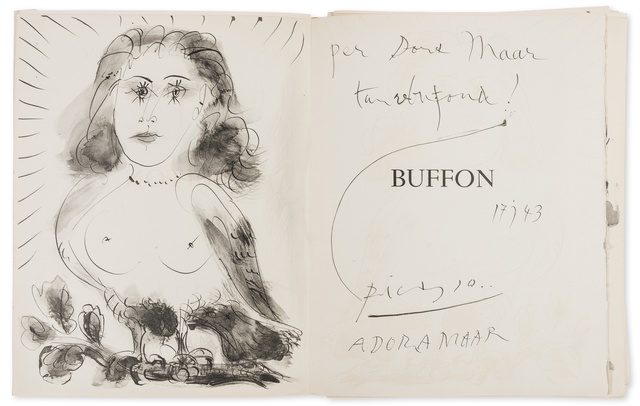 per Dora Maar
tan rebufond!
BUFFON
17 j 43
Picasso..
ADORA MAAR